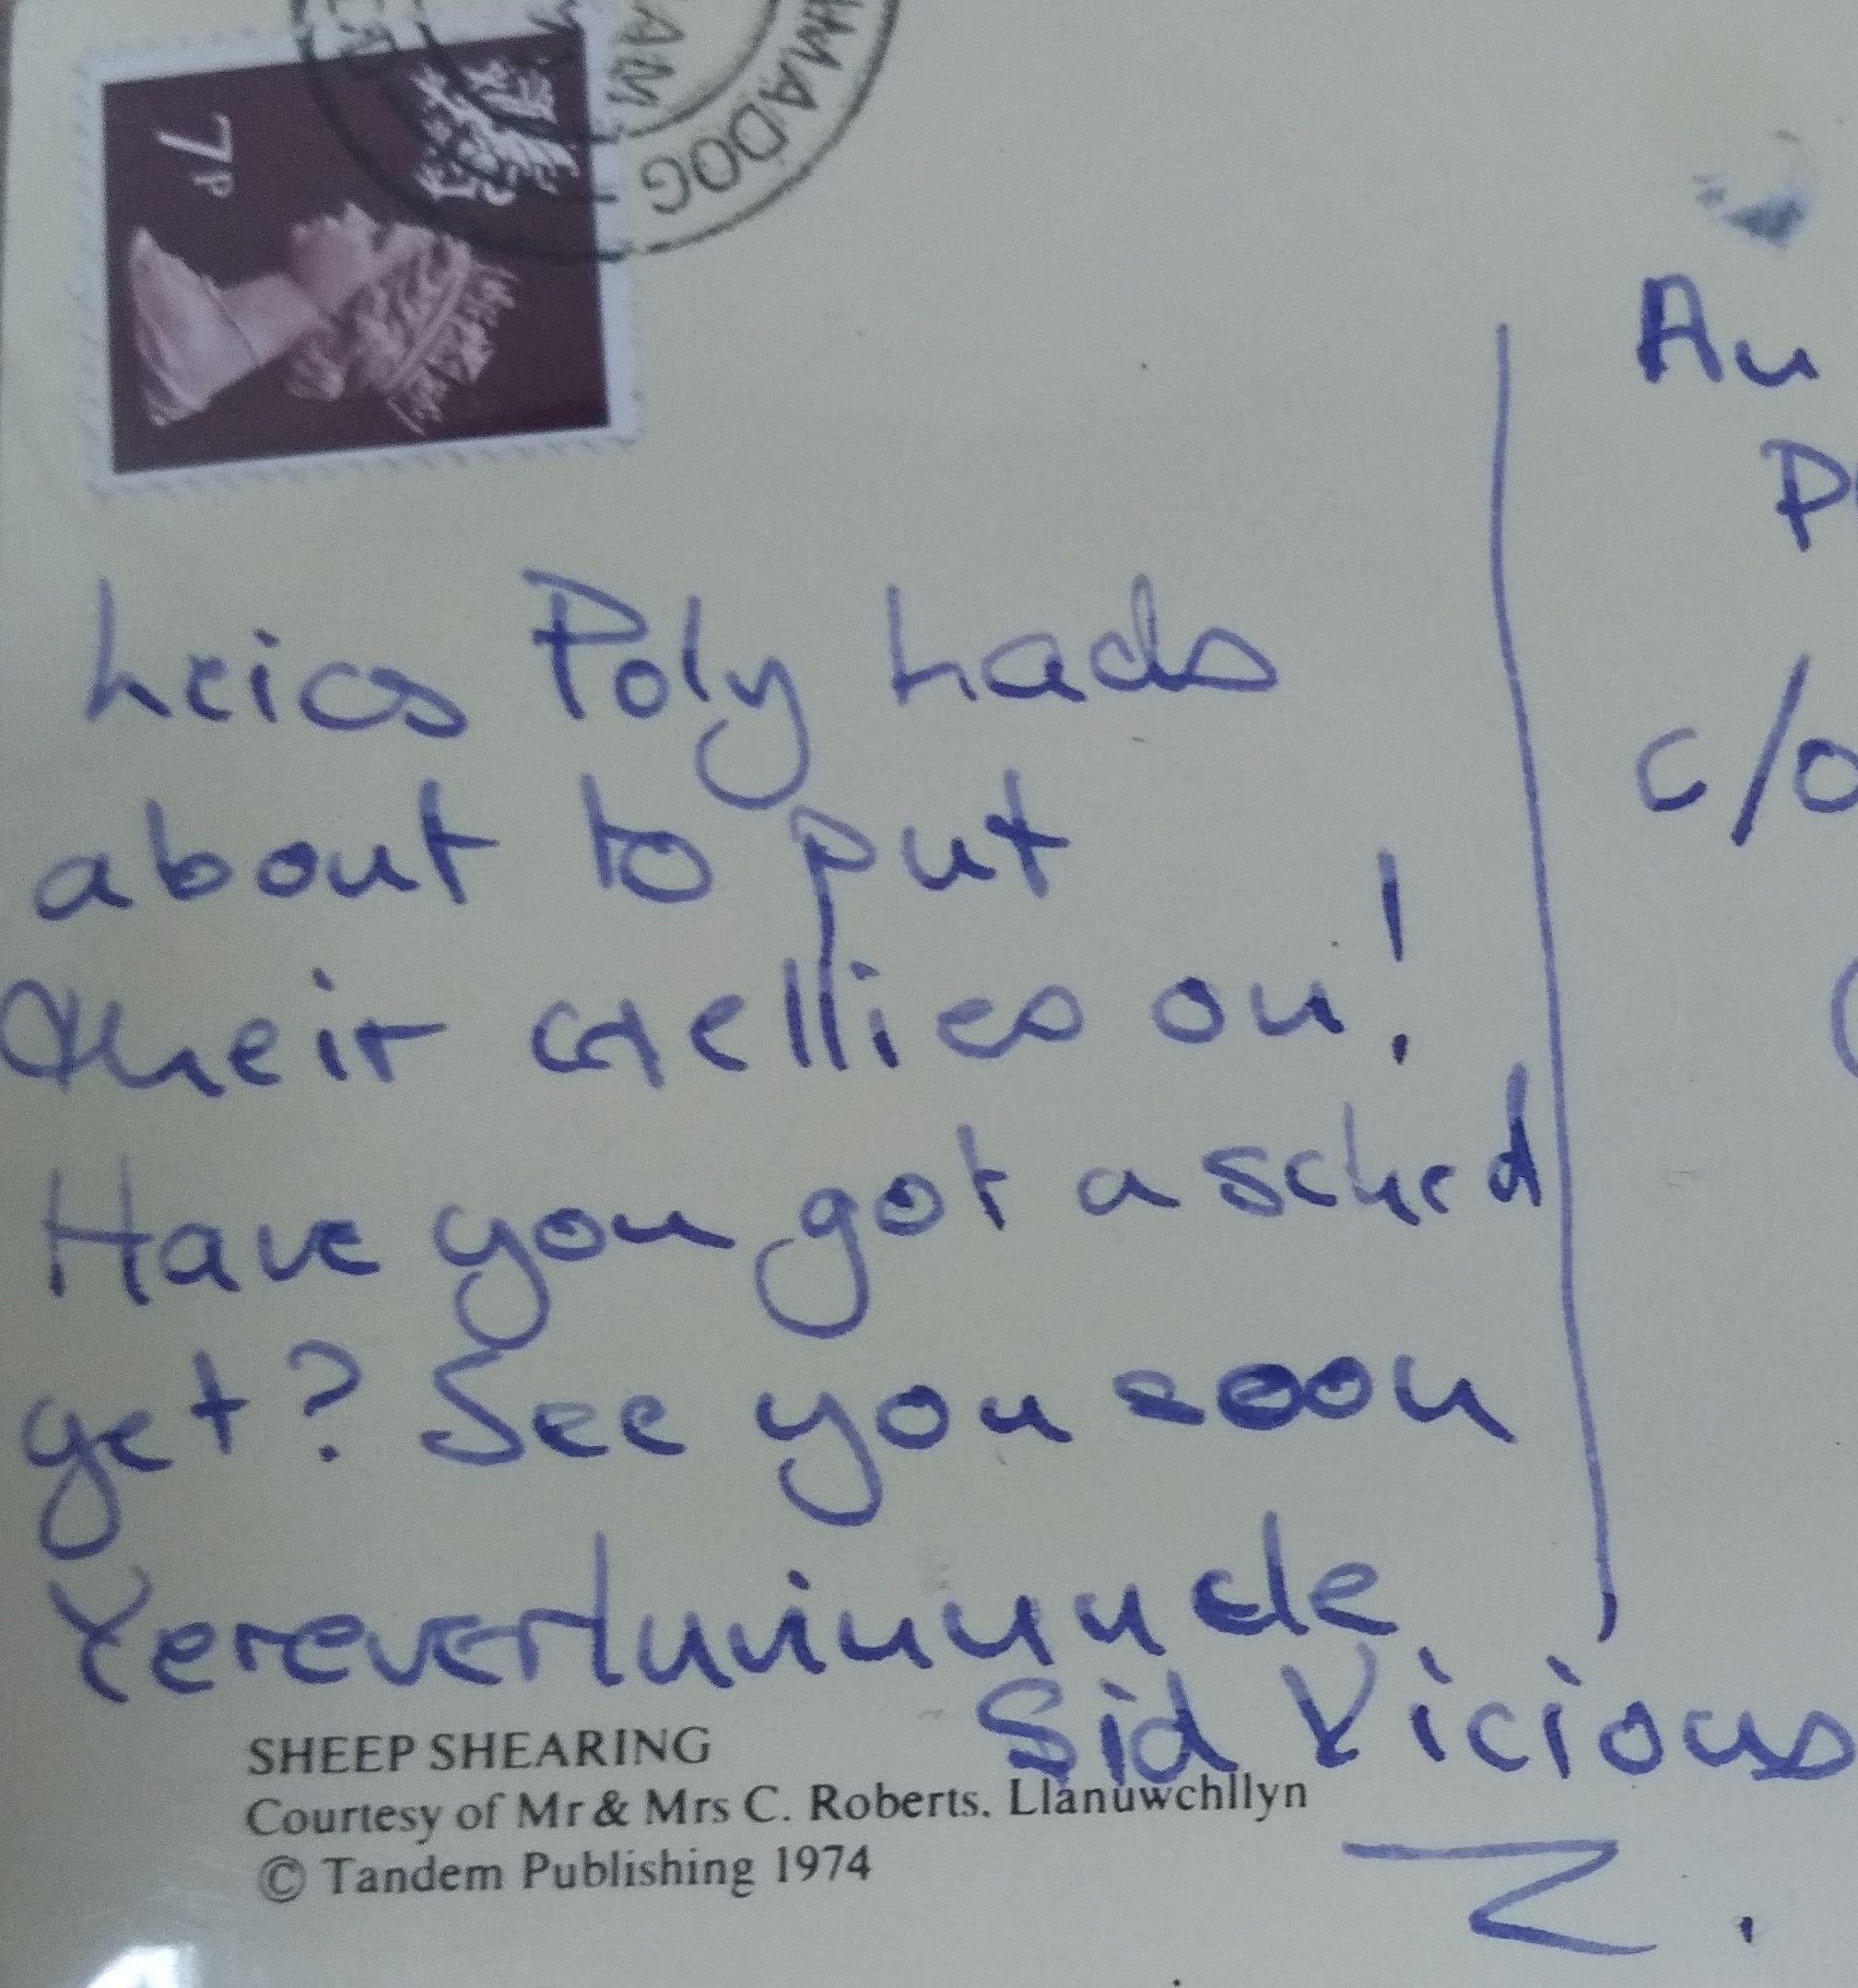 7P
HMADOG
Leics Poly Lads
about to put
their wellies on!
Have you got a sched
yet? See you soon
Sid Vicious
SHEEP SHEARING
Courtesy of Mr & Mrs C. Roberts. Llanuwchllyn
© Tandem Publishing 1974
Au
P
c/o